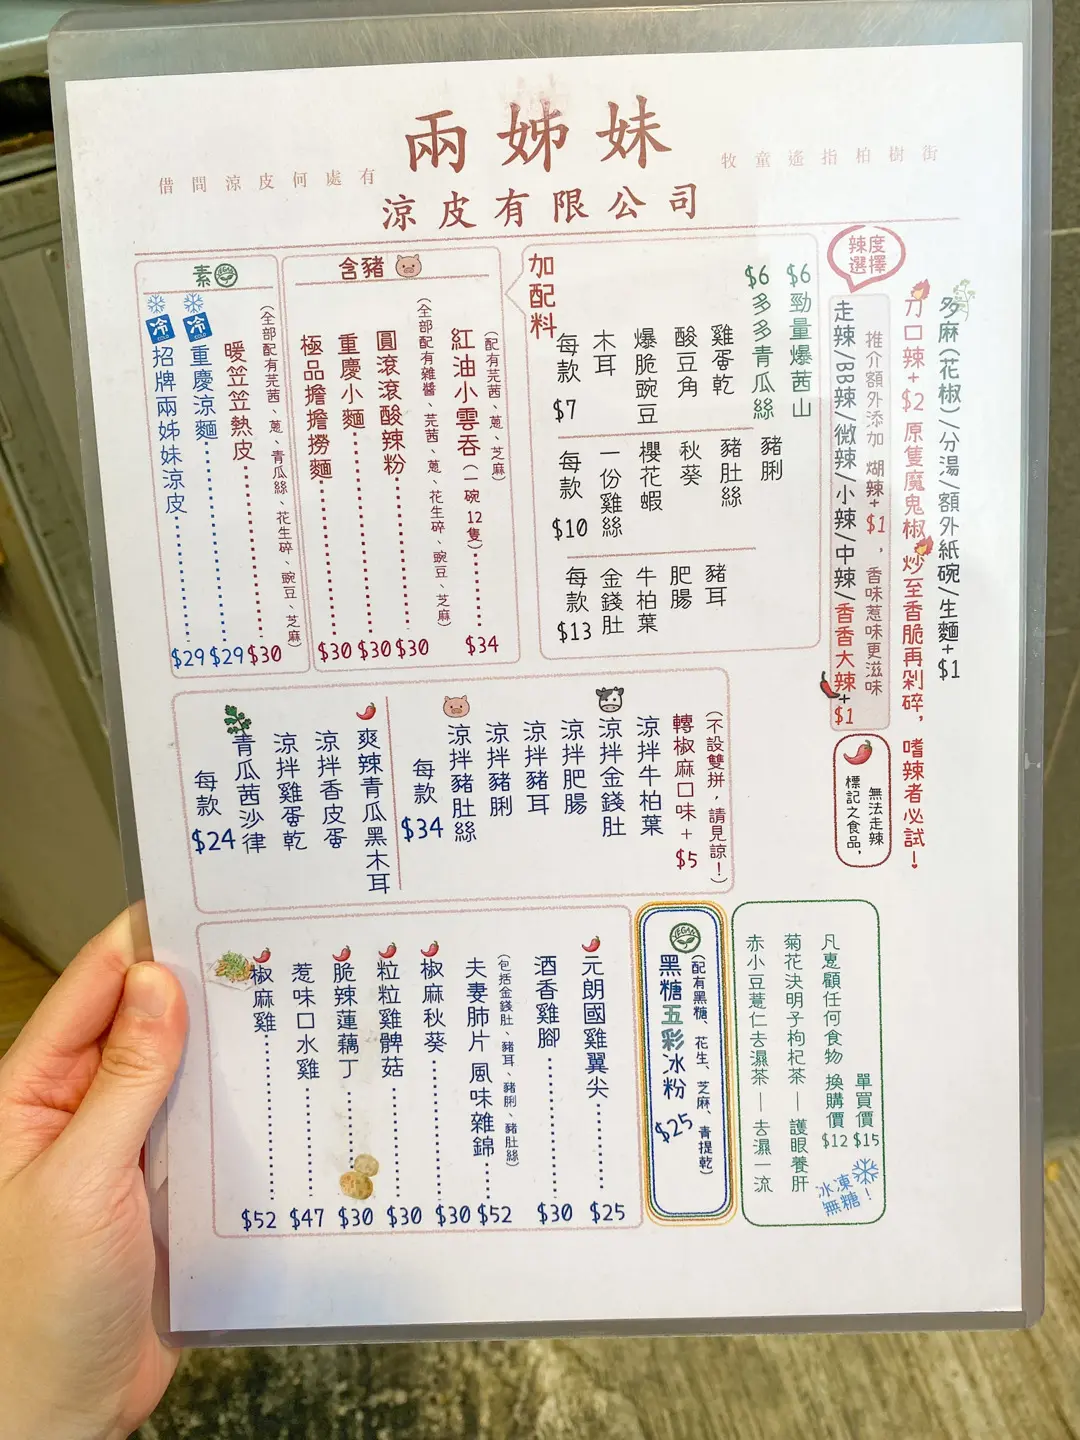 兩姊妹
借問涼皮何處有
牧童遙指柏樹街
涼皮有限公司
多麻(花椒)/分湯/額外紙碗/生麵+$1
刀口辣+$2原隻魔鬼椒炒至香脆再剁碎，嗜辣者必試！
辣度選擇
推介額外添加 煳辣+$1，香味惹味更滋味
走辣/BB辣/微辣/小辣/中辣/香香大辣+$1
無法走辣
標記之食品，
加配料
$6勁量爆茜山
$6多多青瓜絲
雞蛋乾
酸豆角
爆脆豌豆
木耳
每款$7
豬脷
豬肚絲
秋葵
櫻花蝦
一份雞絲
每款$10
豬耳
肥腸
牛柏葉
金錢肚
每款$13
含豬
(配有芫茜、蔥、芝麻)
紅油小雲吞(一碗12隻)$34
(全部配有雜醬、芫茜、蔥、花生碎、豌豆、芝麻)
圓滾滾酸辣粉$30
重慶小麵$30
極品擔擔撈麵$30
素
VEGAN
(全部配有芫茜、蔥、青瓜絲、花生碎、豌豆、芝麻)
暖笠笠熱皮$30
冷 COLD
重慶涼麵$29
冷 COLD
招牌兩姊妹涼皮$29
(不設雙拼，請見諒！)
轉椒麻口味+$5
涼拌牛柏葉
涼拌金錢肚
涼拌肥腸
涼拌豬耳
涼拌豬脷
涼拌豬肚絲
每款$34
爽辣青瓜黑木耳
涼拌香皮蛋
涼拌雞蛋乾
青瓜茜沙律
每款$24
凡惠顧任何食物 單買價$15
換購價$12
菊花決明子枸杞茶—護眼養肝
赤小豆薏仁去濕茶—去濕一流
冰凍無糖！
VEGAN
(配有黑糖、花生、芝麻、青提乾)
黑糖五彩冰粉$25
元朗國雞翼尖$25
酒香雞腳$30
(包括金錢肚、豬耳、豬脷、豬肚絲)
夫妻肺片 風味雜錦$52
椒麻秋葵$30
粒粒雞髀菇$30
脆辣蓮藕丁$30
惹味口水雞$47
椒麻雞$52